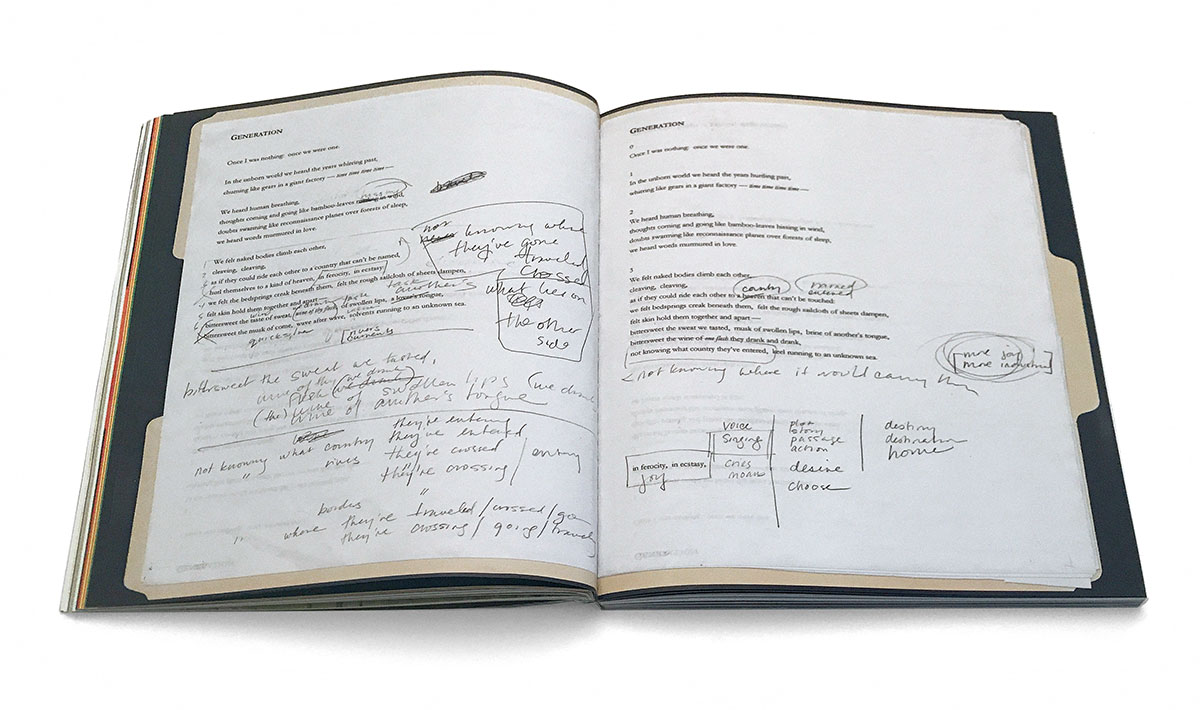 GENERATION
Once I was nothing: once we were one.
In the unborn world we heard the years whirring past,
churning like gears in a giant factory — time time time time —
We heard human breathing,
thoughts coming and going like bamboo-leaves in wind,
doubts swarming like reconnaissance planes over forests of sleep,
we heard words murmured in love.
We felt naked bodies climb each other,
cleaving, cleaving,
as if they could ride each other to a country that can't be named,
hurl themselves to a kind of heaven, in ferocity, in ecstasy,
we felt the bedsprings creak beneath them, felt the rough sailcloth of sheets dampen,
felt skin hold them together and apart —
bittersweet the taste of sweat, of swollen lips, a tongue,
bittersweet the musk of come, wave after wave, solvents running to an unknown sea.
not
knowing where
they've gone
traveled
crossed
another's
what lies on
the other
side
rivers
currents
bittersweet the sweat we tasted,
(we drank)
(the) wine of swollen lips (we drank
wine of another's tongue
they're entering
not knowing what country they've entered
" rives they've crossed
they're crossing
entering
"
borders
" where they've traveled / crossed / go
they're crossing / going / travel
GENERATION
0
Once I was nothing: once we were one.
1
In the unborn world we heard the years hurtling past,
whirring like gears in a giant factory — time time time time —
2
We heard human breathing,
thoughts coming and going like bamboo-leaves hissing in wind,
doubts swarming like reconnaissance planes over forests of sleep,
we heard words murmured in love.
3
We felt naked bodies climb each other,
country named
cleaving, cleaving, entered
as if they could ride each other to a heaven that can't be touched:
we felt bedsprings creak beneath them, felt the rough sailcloth of sheets dampen,
felt skin hold them together and apart —
bittersweet the sweat we tasted, musk of swollen lips, brine of another's tongue,
bittersweet the wine of one flesh they drank and drank,
not knowing what country they've entered, keel running to an unknown sea.
more joy
more
not knowing where it would carry them
voice
singing
plan
story
passage
action
destiny
destination
home
in ferocity, in ecstasy,
joy
cries
moans
desire
choose